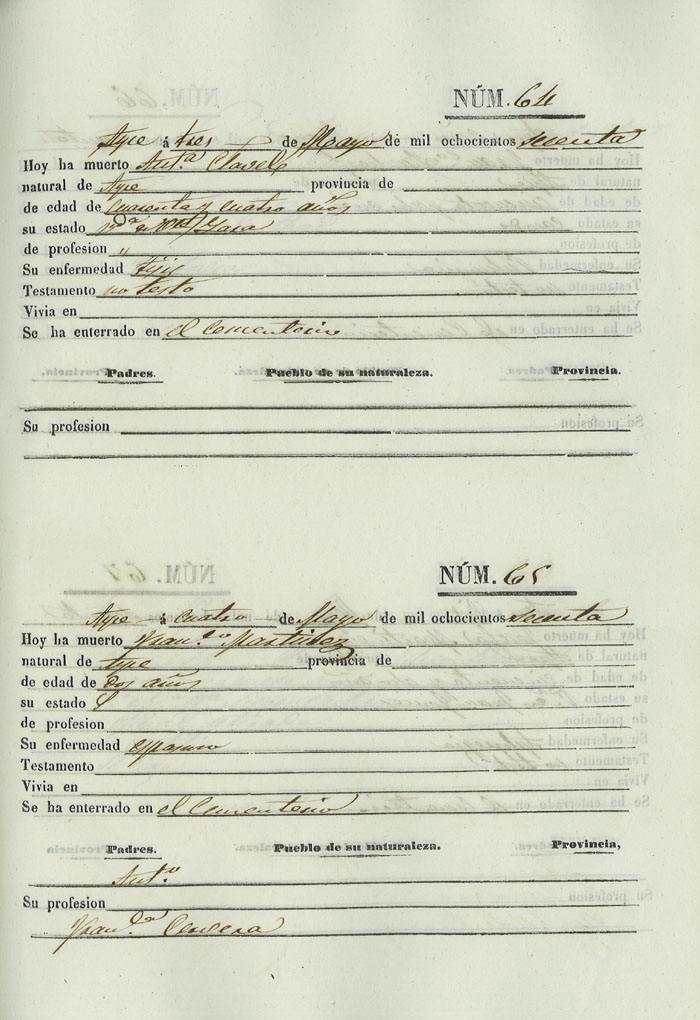 NÚM. 64
Aspe á tres de Mayo de mil ochocientos sesenta
Hoy ha muerto Ant.ª Clavel
natural de Aspe provincia de
de edad de cuarenta y cuatro años
su estado v.da de
de profesion "
Su enfermedad Tisis
Testamento no testo
Vivia en
Se ha enterrado en el Cementerio
Padres. Pueblo de su naturaleza. Provincia.
Su profesion
NÚM. 65
Aspe á cuatro de Mayo de mil ochocientos sesenta
Hoy ha muerto Fran.co Martinez
natural de Aspe provincia de
de edad de dos años
su estado
de profesion
Su enfermedad
Testamento
Vivia en
Se ha enterrado en el Cementerio
Padres. Pueblo de su naturaleza. Provincia,
Ant.º
Su profesion
Fran.ca Cervera